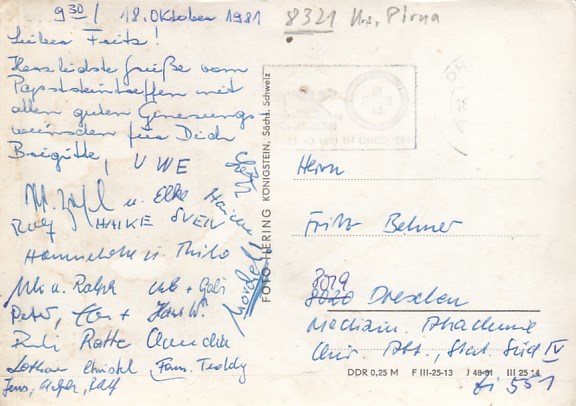 9 30 / 18. Oktober 1981
8321 Krs. Pirna
Lieber Fritz!
Herzlichste Grüße vom
Papststeintreffen mit
allen guten Genesungs
wünschen für Dich
Brigitte, UWE
u. Elke
Rolf HAIKE SVEN
Hannelore u. Thilo
Uli u. Ralph Gabi
Peter, Hans W.
Rudi Ratte Claudia
Lothar Christel Fam. Teddy
Jens,
FOTO-HERING KÖNIGSTEIN, Sächs. Schweiz
Herrn
Fritz Behner
8019
8020 Dresden
Medizin. Akademie
Chir. Abt., Stat. Süd IV
Zi 551
DDR 0,25 M F III-25-13 J 48-81 III 25 14